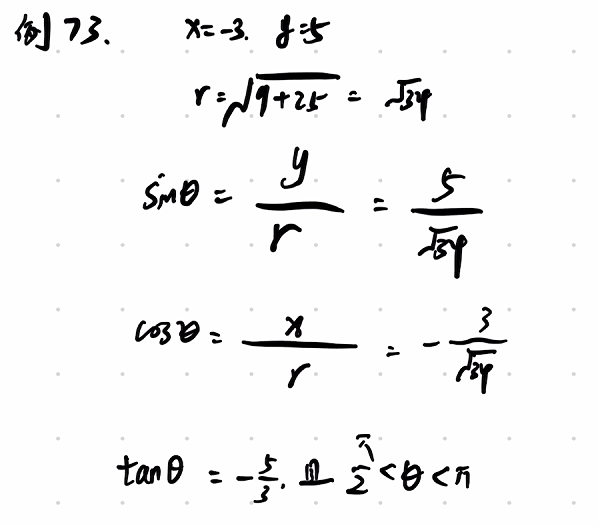 例73. x=-3. y=5
r=√(9+25) = √34
sinθ = y/r = 5/√34
cosθ = x/r = -3/√34
tanθ = -5/3. 且 π/2<θ<π